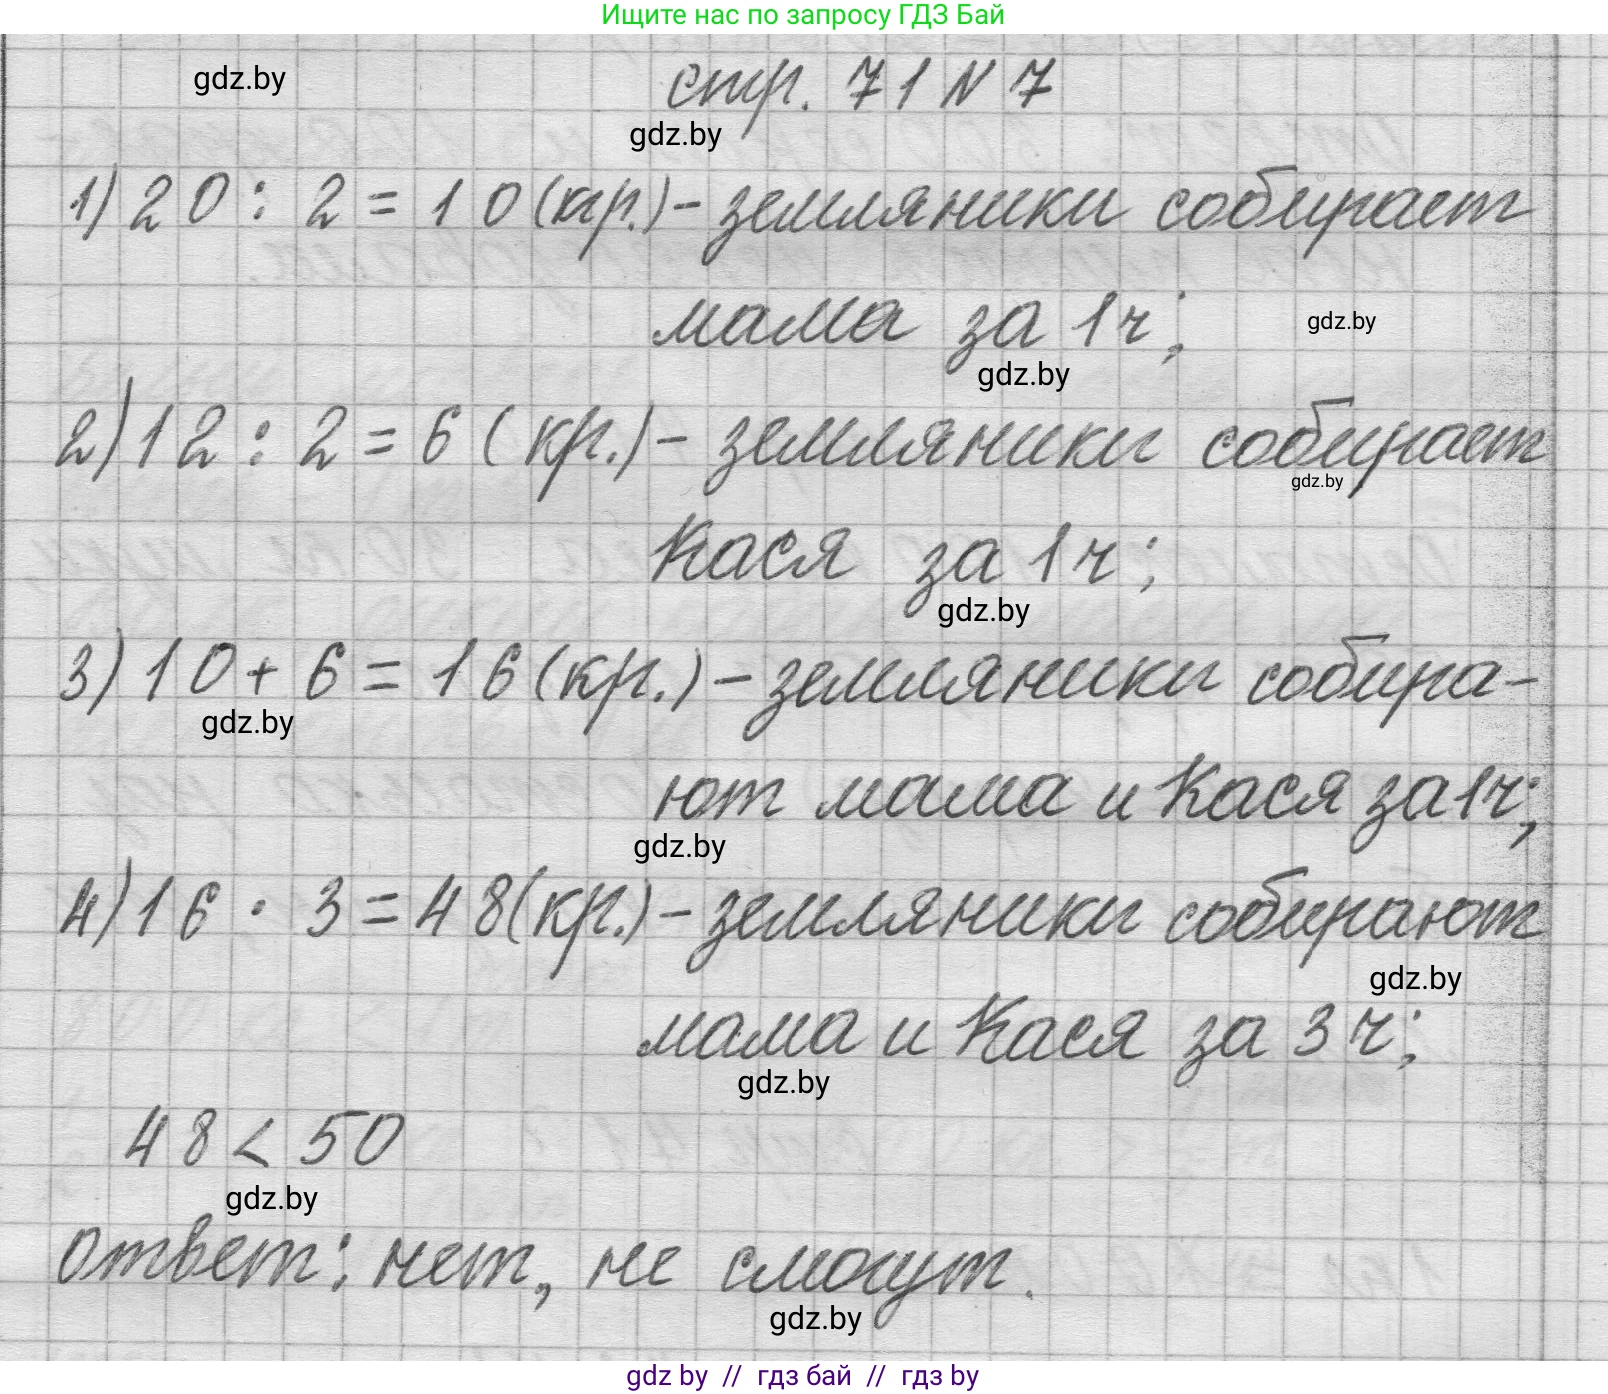 Ищите нас по запросу ГДЗ Бай
gdz.by
стр. 71 N 7
gdz.by
1) 20 : 2 = 10 (кр.) - земляники собирает
мама за 1 ч;
gdz.by
gdz.by
2) 12 : 2 = 6 (кр.) - земляники собирает
gdz.by
Кася за 1 ч;
gdz.by
3) 10 + 6 = 16 (кр.) - земляники собира-
gdz.by
ют мама и Кася за 1 ч;
gdz.by
4) 16 · 3 = 48 (кр.) - земляники собирают
gdz.by
мама и Кася за 3 ч;
gdz.by
48 < 50
gdz.by
Ответ: нет, не смогут.
gdz.by
gdz by // гдз бай // гдз by